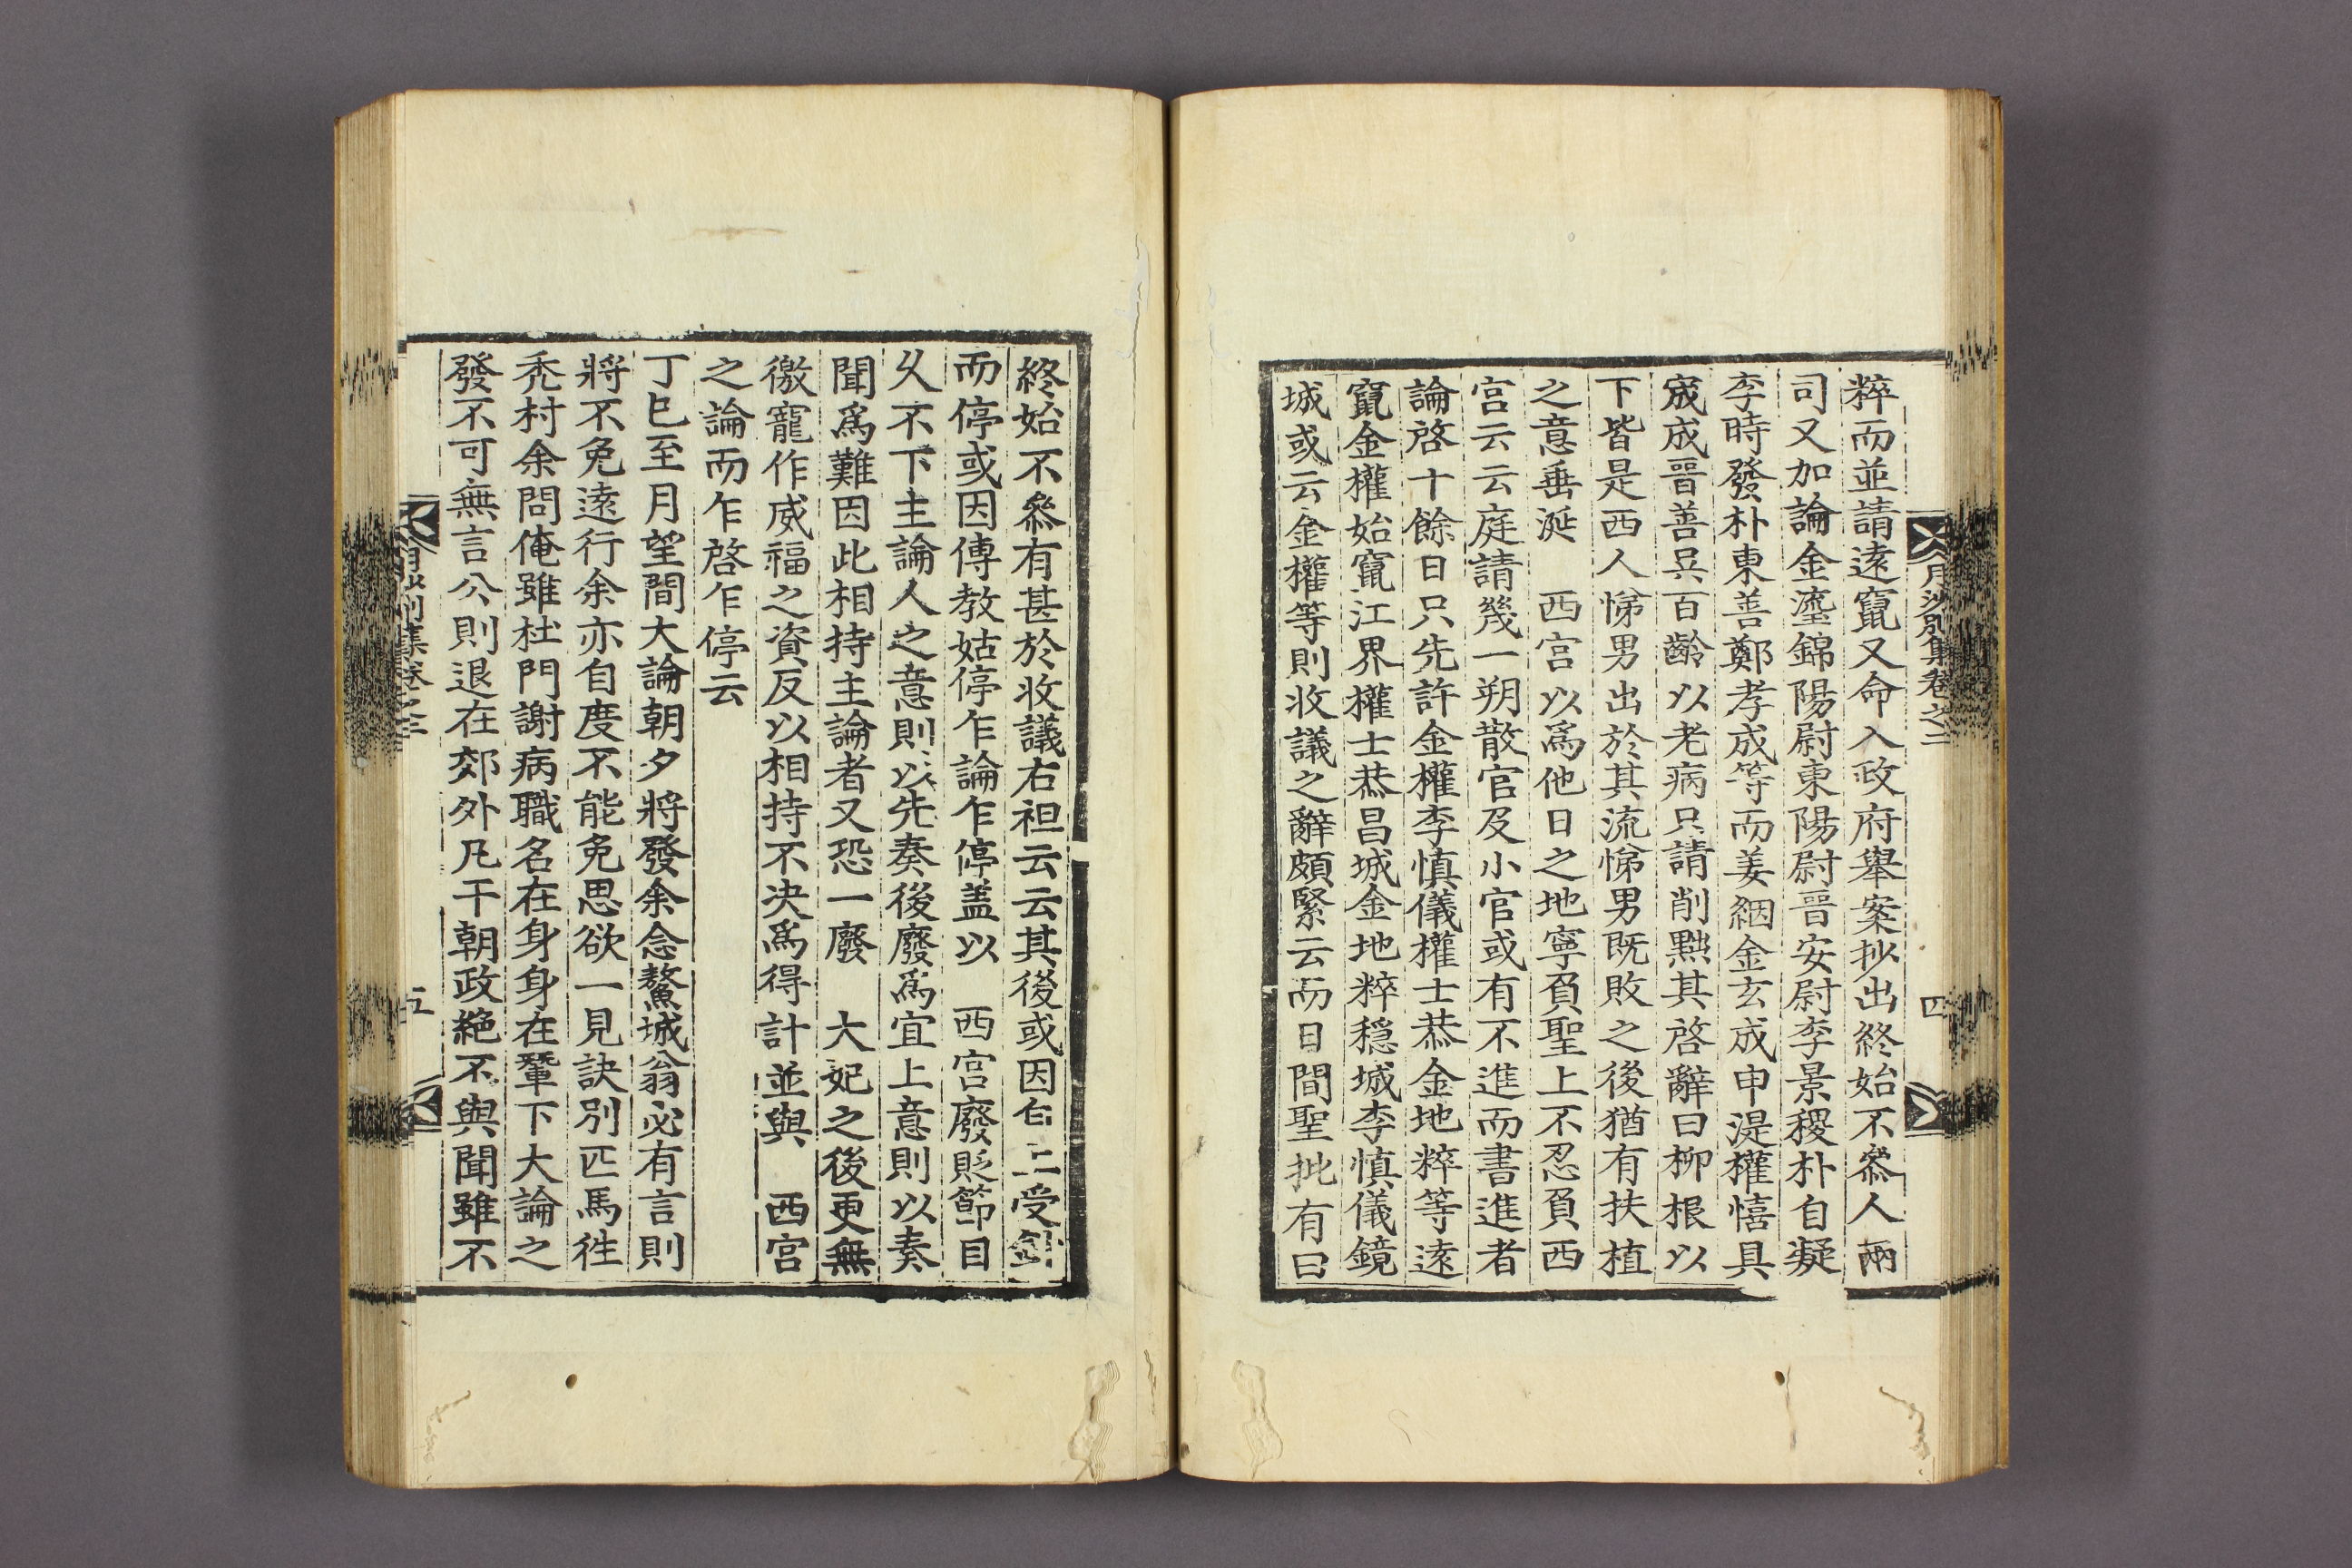 月沙別集卷之二
四
粹而並請遠竄又命入政府舉案抄出終始不叅人兩
司又加論金瑬錦陽尉東陽尉晋安尉李景稷朴自凝
李時發朴東善鄭孝成等而姜絪金玄成申湜權憘具
宬成晋善吳百齡以老病只請削黜其啓辭曰柳根以
下皆是西人悌男出於其流悌男既敗之後猶有扶植
之意垂涎 西宮以爲他日之地寧負聖上不忍負西
宮云云庭請幾一朔散官及小官或有不進而書進者
論啓十餘日只先許金權李愼儀權士恭金地粹等遠
竄金權始竄江界權士恭昌城金地粹穩城李愼儀鏡
城或云金權等則收議之辭頗緊云而日間聖批有曰
終始不叅有甚於收議右袒云云其後或因 受
而停或因傳教姑停乍論乍停盖以 西宮廢貶節目
久不下主論人之意則以先奏後廢爲宜上意則以奏
聞爲難因此相持主論者又恐一廢 大妃之後更無
徼寵作威福之資反以相持不决爲得計並與 西宮
之論而乍啓乍停云
丁巳至月望間大論朝夕將發余念鰲城翁必有言則
將不免遠行余亦自度不能免思欲一見訣別匹馬徃
禿村余問俺雖杜門謝病職名在身身在輦下大論之
發不可無言公則退在郊外凡干朝政絶不與聞雖不
月沙別集卷之二
五